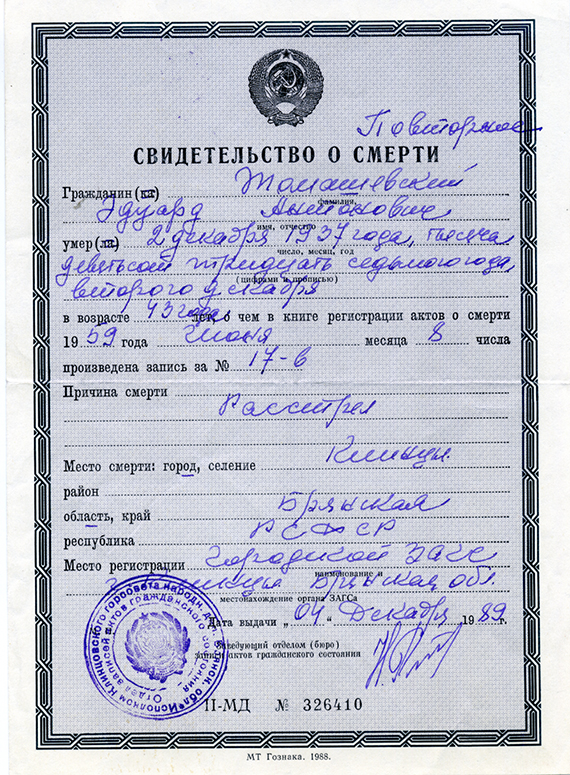 Повторное
СВИДЕТЕЛЬСТВО О СМЕРТИ
Гражданин (ка) Томашевский
фамилия,
Эдуард Антонович
имя, отчество
умер(ла) 2 декабря 1937 года, тысяча
число, месяц, год
девятьсот тридцать седьмого года,
(цифрами и прописью)
второго декабря
в возрасте 43 года лет, о чем в книге регистрации актов о смерти
1959 года Июня месяца 8 числа
произведена запись за № 17-в
Причина смерти
Расстрел
Место смерти: город, селение Клинцы
район
область, край Брянская
республика РСФСР
Место регистрации Городской ЗАГС
наименование и
Клинцы Брянская обл.
местонахождение органа ЗАГСа
Дата выдачи „04" Декабря 1989 г.
Заведующий отделом (бюро)
записи актов гражданского состояния
II-МД № 326410
МТ Гознака. 1988.